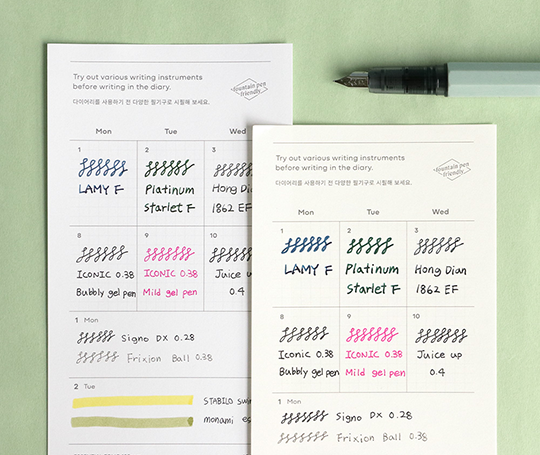 Try out various writing instruments
before writing in the diary.
다이어리를 사용하기 전 다양한 필기구로 시필해 보세요.
fountain pen
friendly
Mon Tue Wed
1 2 3
LAMY F Platinum Starlet F Hong Dian 1862 EF
8 9 10
ICONIC 0.38 Bubbly gel pen ICONIC 0.38 Mild gel pen Juice up 0.4
1 Mon
Signo DX 0.28
Frixion Ball 0.38
2 Tue
STABILO
monami
Try out various writing instruments
before writing in the diary.
다이어리를 사용하기 전 다양한 필기구로 시필해 보세요.
fountain pen
friendly
Mon Tue Wed
1 2 3
LAMY F Platinum Starlet F Hong Dian 1862 EF
8 9 10
Iconic 0.38 Bubbly gel pen ICONIC 0.38 Mild gel pen Juice up 0.4
1 Mon
Signo DX 0.28
Frixion Ball 0.38